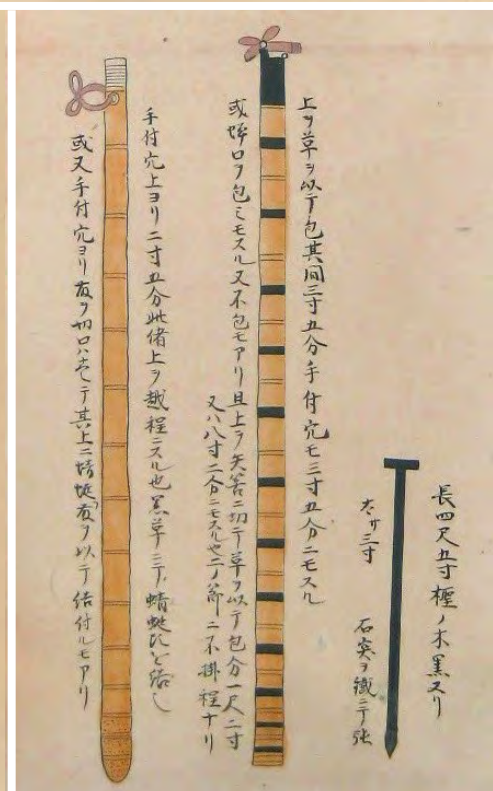 長四尺五寸樫ノ木黒ヌリ
太サ三寸
石突ヲ鐵ニテ張
上ヲ革ヲ以テ包其間三寸五分手付穴モ三寸五分ニモスル
或蟬口ヲ包ミモスル又不包モアリ且上ヲ矢筈ニ切テ革ヲ以テ包分一尺二寸
又ハ八寸二分ニモスル也二ノ節ニ不掛程ナリ
手付穴上ヨリ二寸五分此緒上ヲ越程ニスル也黒革ニテ蜻蛉
或又手付穴ヨリ ヲ切口ハ テ其上ニ蜻蛉 ヲ以テ付ルモアリ